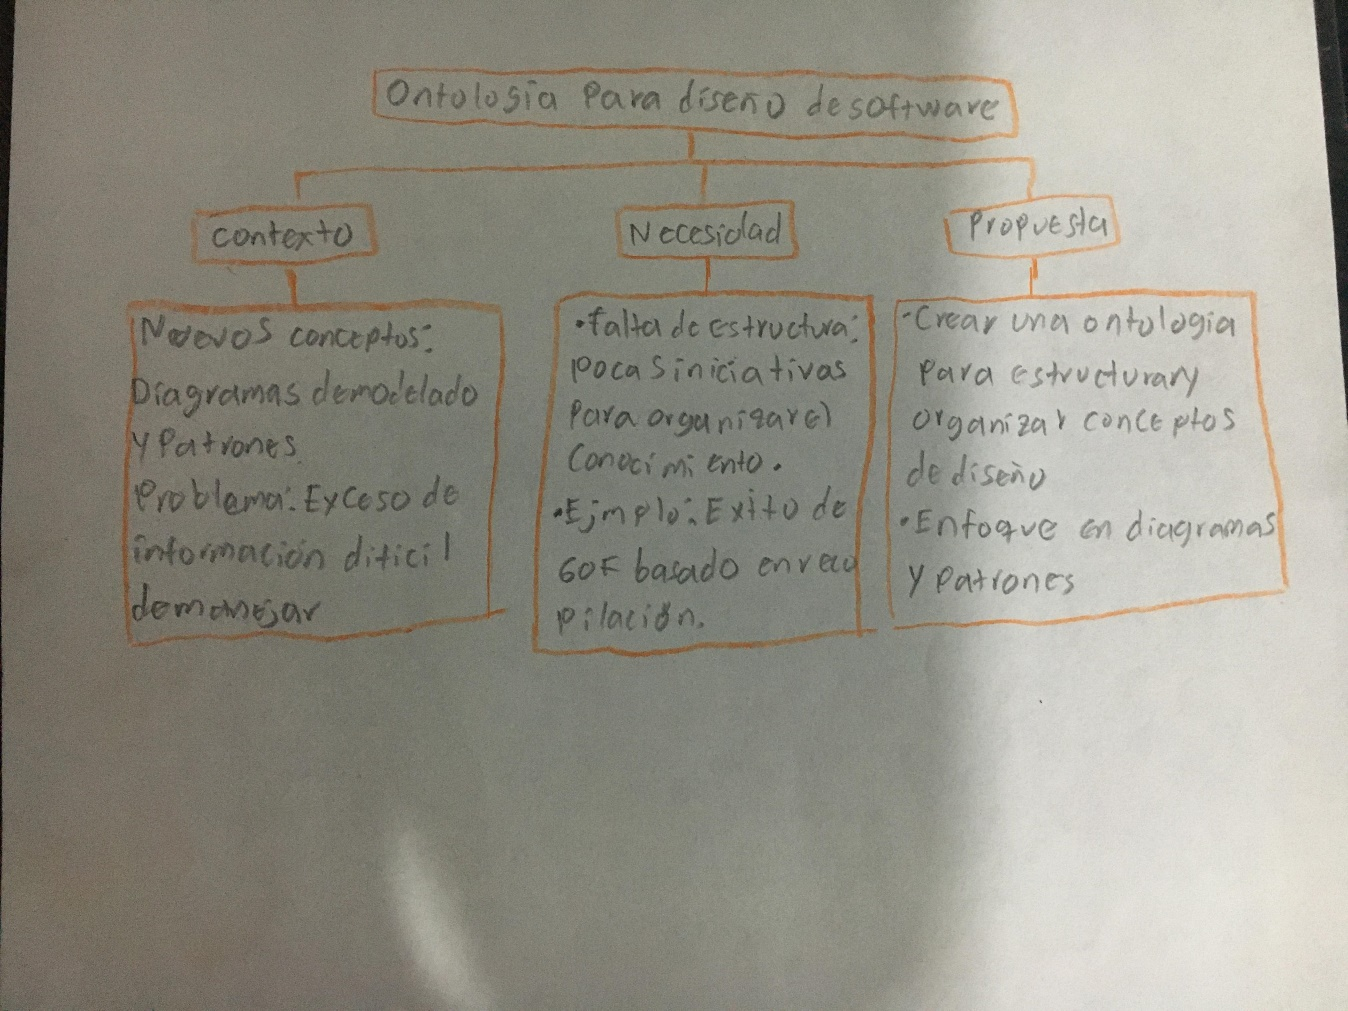 Ontologia para diseño de software
Contexto
Necesidad
Propuesta
Nuevos conceptos:
Diagramas de modelado
y Patrones
Problema: Exceso de
información dificil
de manejar
•falta de estructura:
pocas iniciativas
para organizar el
Conocimiento.
•Ejmplo: Exito de
GOF basado en reco
pilación.
•Crear una ontologia
para estructurar y
organizar conceptos
de diseño
•Enfoque en diagramas
y patrones